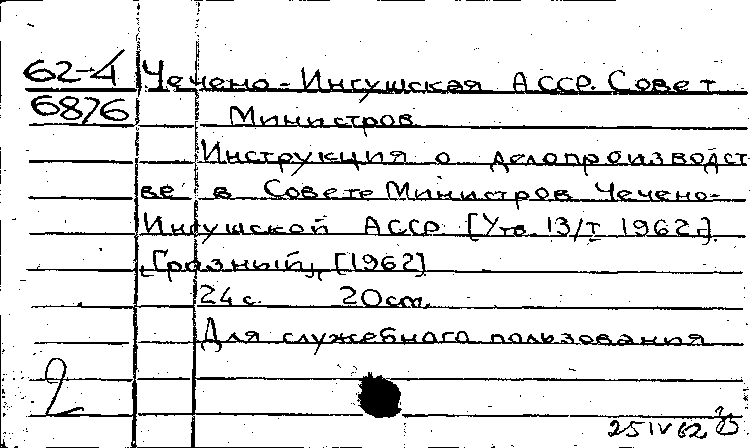 62-4 Чечено-Ингушская АССР. Совет
6876 Министров
Инструкция о делопроизводст
ве в Совете Министров Чечено-
Ингушской АССР. [Утв. 13/I 1962г.].
[Грозный], [1962]
24 с. 20 cm.
Для служебного пользования
2
25 IV 62